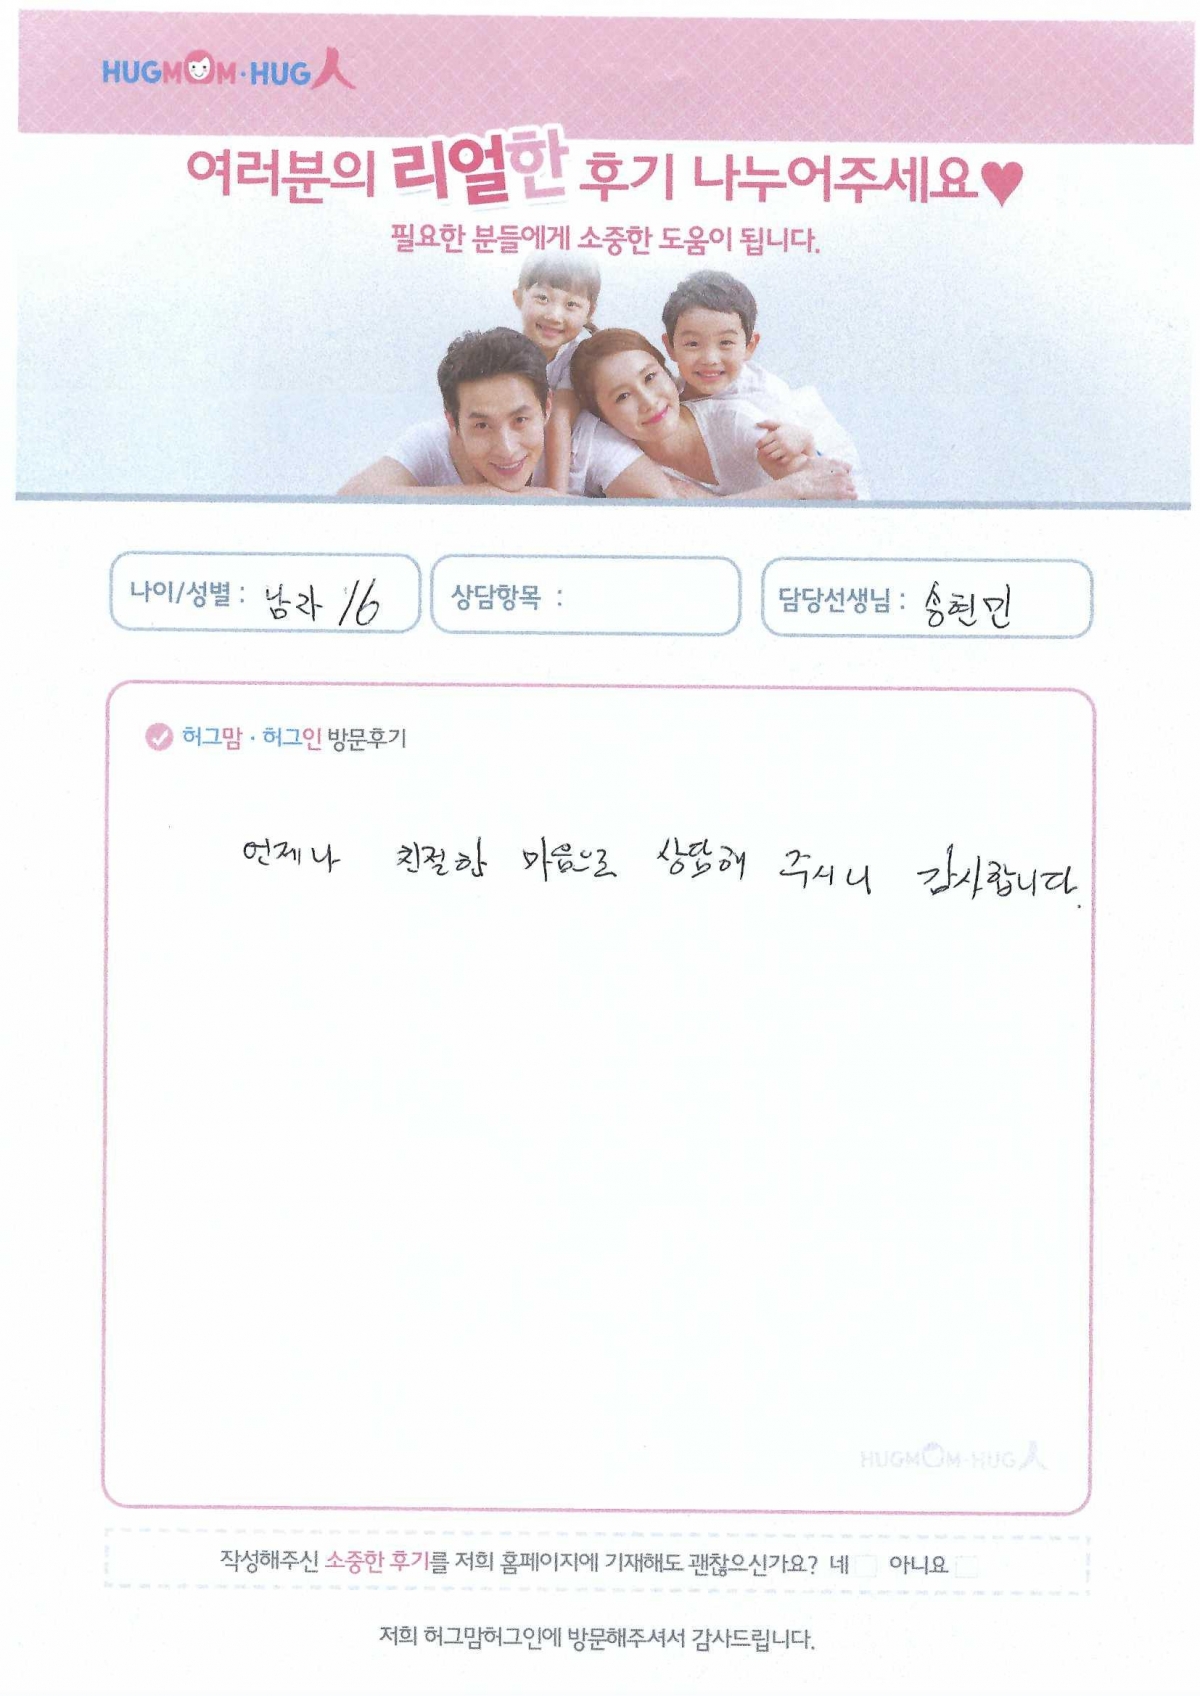 HUGMOM·HUG人
여러분의 리얼한 후기 나누어주세요♥
필요한 분들에게 소중한 도움이 됩니다.
나이/성별 : 남자 16
상담항목 :
담당선생님 : 송현민
허그맘·허그인 방문후기
언제나 친절한 마음으로 상담해 주시니 감사합니다.
HUGMOM·HUG人
작성해주신 소중한 후기를 저희 홈페이지에 기재해도 괜찮으신가요? 네 아니요
저희 허그맘허그인에 방문해주셔서 감사드립니다.